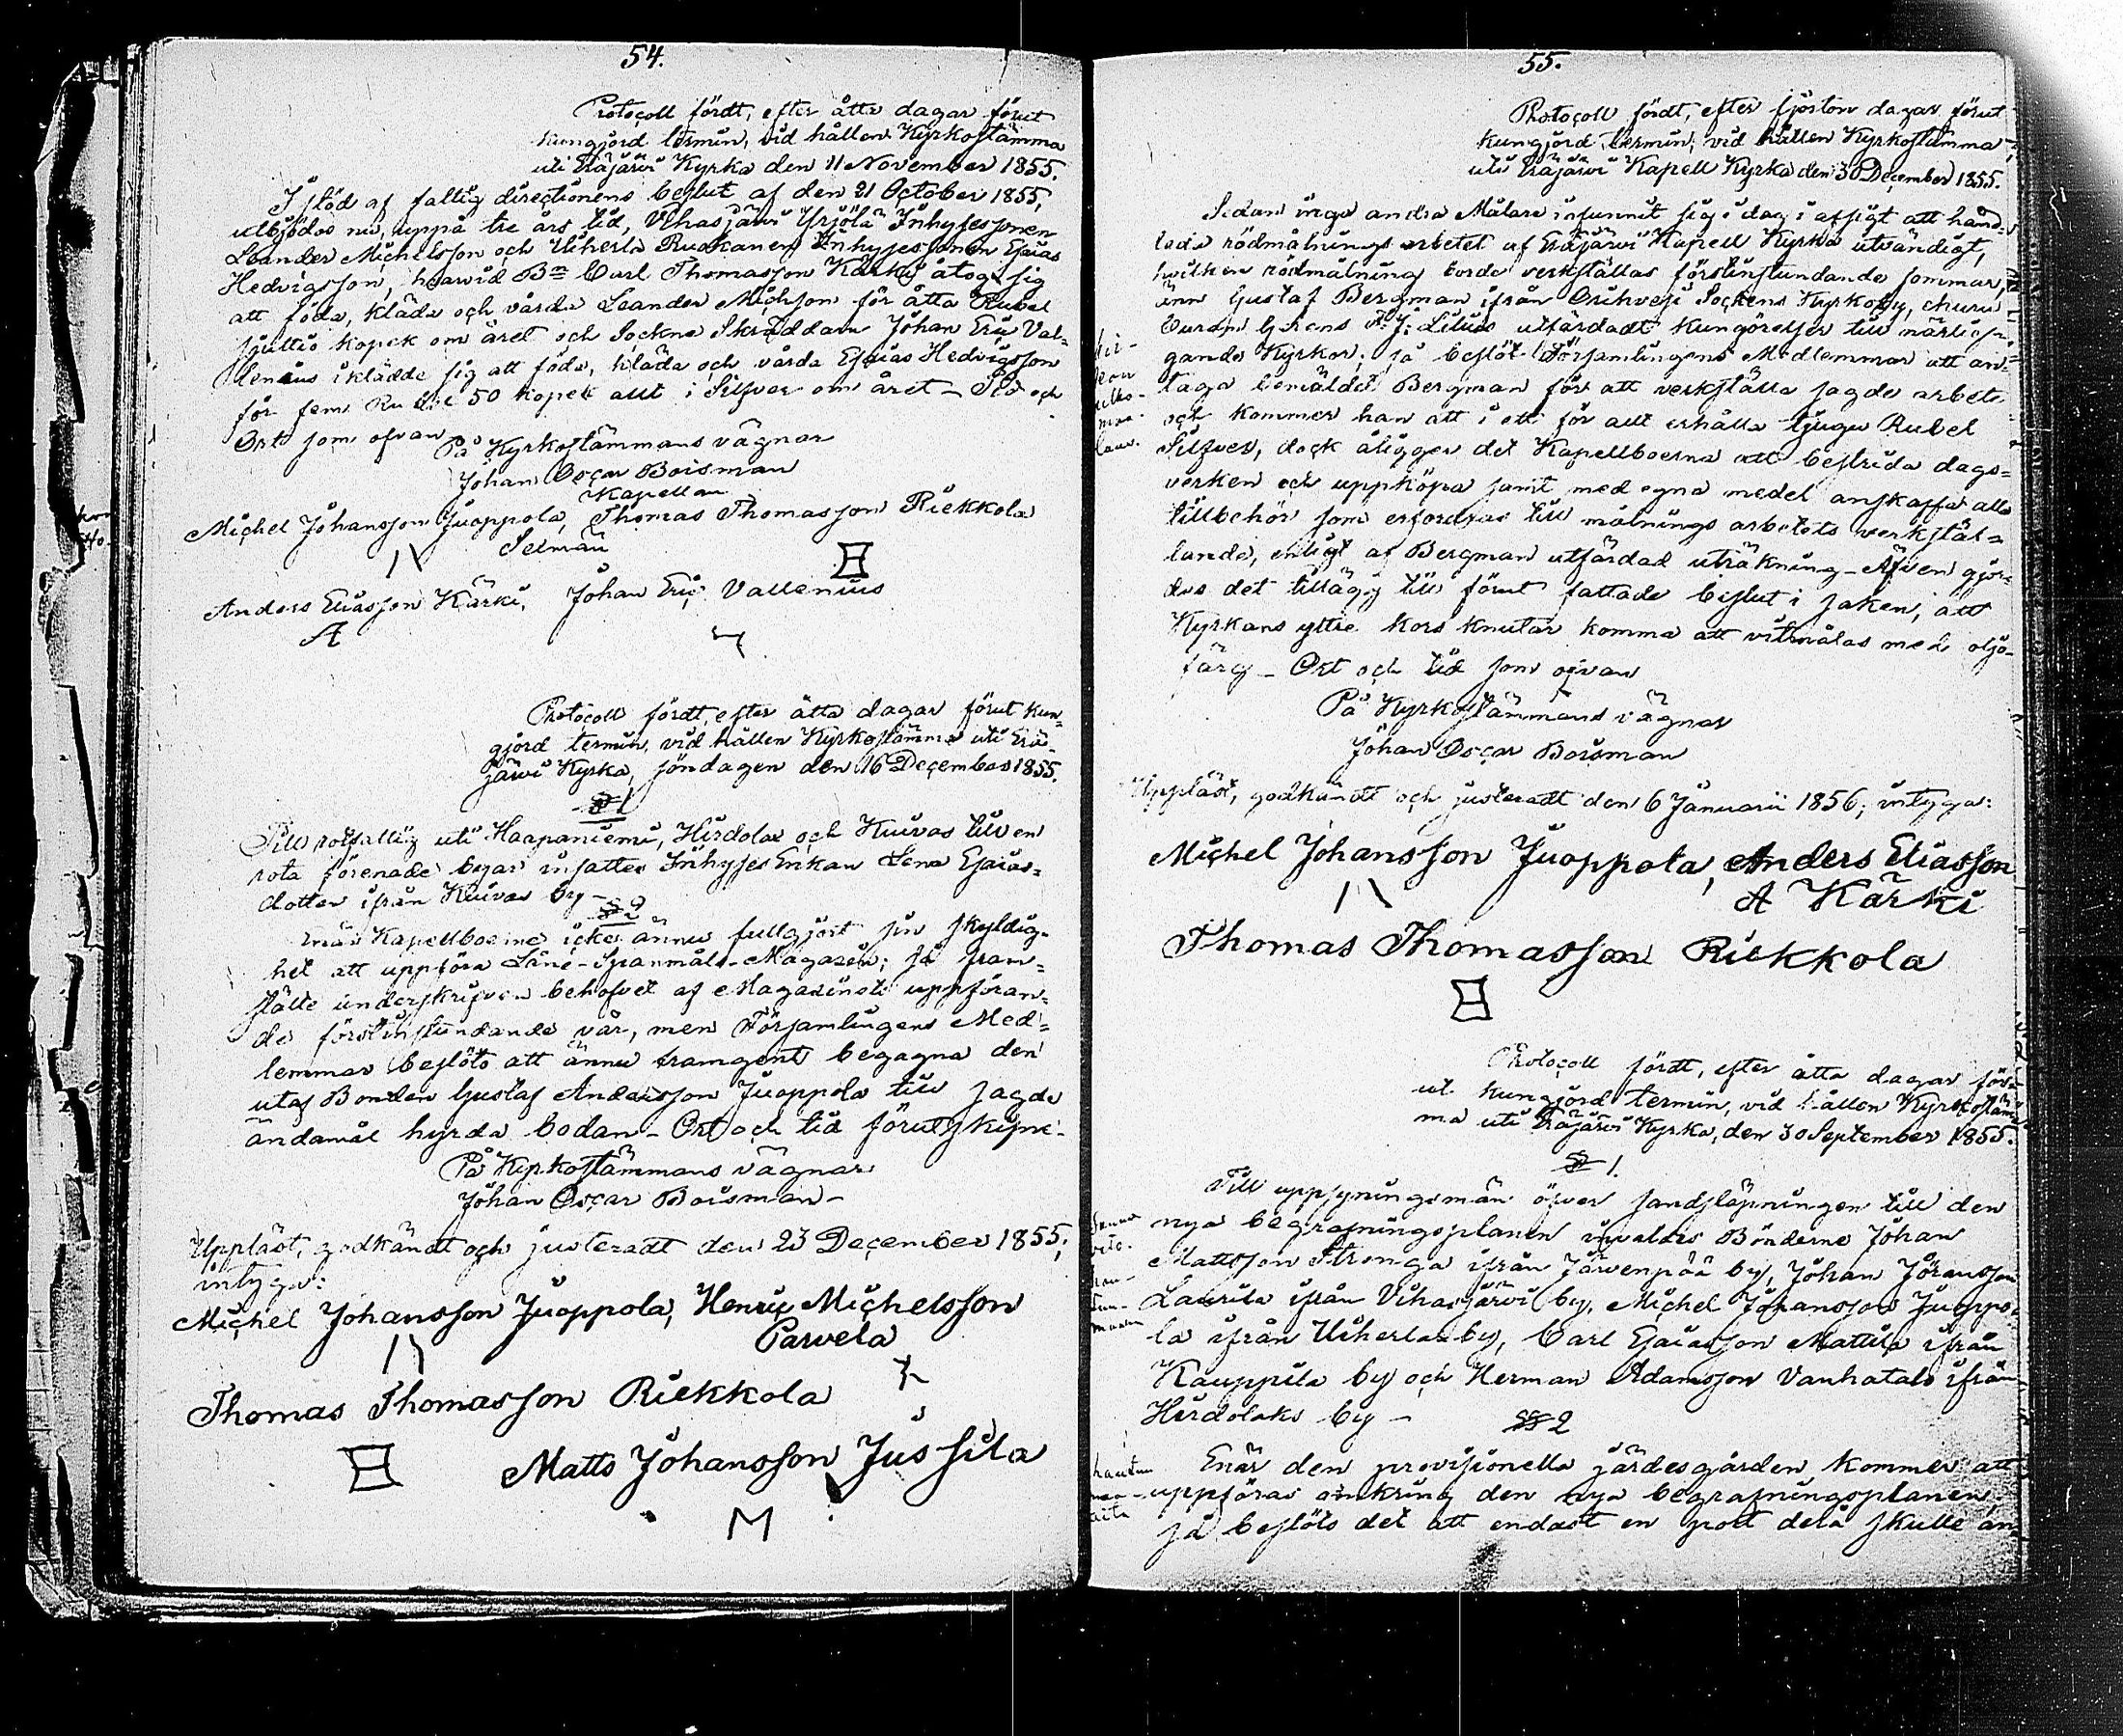 54.
Protocoll fördt, efter åtta dagar förut
kungjord termin, vid hållen Kyrkostämma
uti Eräjärvi Kyrka den 11 November 1855.
I stöd af fattig directionens beslut af den 21 October 1855,
utbjödos nu, uppå tre års tid, Vihasjärvi Yrjölä Inhysessonen
Leander Michelsson och Uiherla Ruokanen Inhysessonen Esaias
Hedvigsson, hvarvid Bn Carl Thomasson Kärki åtog sig
att föda, kläda och vårda Leander Michsson för åtta Rubel
sjuttio kopek om året och Sockne Skräddare Johan Eric Val-
lenius iklädde sig att föda, kläda och vårda Esaias Hedvigsson
för fem Rubel 50 kopek allt i Silfver om året - Tid och
Ort som ofvan
På Kyrkostämmans vägnar
Johan Oscar Boisman
Kapellan
Michel Johansson Juoppola, Thomas Thomasson Riekkola
Selmän
Anders Eliasson Kärki, Johan Eric Vallenius
A
Protocoll fördt, efter åtta dagar förut kun-
gjord termin, vid hållen Kyrkostämma uti Erä-
järvi Kyrka, söndagen den 16 December 1855.
§ 1
Till rotfattig uti Haapaniemi, Hirdola och Kuivas till en
rota förenade byar insattes Inhyses Enkan Lena Esaias-
dotter ifrån Kuivas by -
§ 2
Enär Kapellboerne icke ännu fullgjort sin skyldig-
het att uppföra Låne-Spanmåls-Magasin; så fram-
stälte underskrifven behofvet af Magasinets uppföran-
de förstinstundande vår, men Församlingens Med-
lemmar beslöto att ännu framgent begagna den
utaf Bonden Gustaf Andersson Juoppola till sagde
ändamål hyrda bodan - Ort och tid förutskrifne -
På Kyrkostämmans vägnar
Johan Oscar Boisman -
Uppläst, godkändt och justeradt den 23 December 1855;
intyga:
Michel Johansson Juoppola, Henric Michelsson
Parvela
Thomas Thomasson Riekkola
Matts Johansson Jussila
M
55.
Protocoll fördt, efter fjorton dagar förut
kungjord termin, vid hållen Kyrkostämma
uti Eräjärvi Kapell Kyrka den 30 December 1855.
Sedan inga andra Målare infunnit sig i dag i afsigt att hand-
leda rödmålnings arbetet af Eräjärvi Kapell Kyrka utvändigt,
hvilken rödmålning borde verkställas förstinstundande sommar,
änn Gustaf Bergman ifrån Orihvesi Sockens Kyrkoby, churu
Cursor Gerens A. J. Lilius utfärdadt kungörelser till närlig-
gande Kyrkor; så beslöt Församlingens Medlemmar att an-
taga bemälde Bergman för att verkställa sagde arbete
och kommer han att i ett för allt erhålla tjugu Rubel
Silfver, dock åligger det Kapellboerna att bestrida dags-
verken och uppköpa samt med egna medel anskaffa alla
tillbehör som erfordras till målnings arbetets verkstäl-
lande, enligt af Bergman utfärdad uträkning - Äfven gjor-
des det tillägg till förut fattade beslut i saken, att
Kyrkans yttre kors knutar komma att vitmålas med olje-
färg - Ort och tid som ofvan
På Kyrkostämmans vägnar
Johan Oscar Boisman
Uppläst, godkändt och justeradt den 6 Januarii 1856; intyga:
Michel Johansson Juoppola, Anders Eliasson
A Kärki
Thomas Thomasson Riekkola
Protocoll fördt, efter åtta dagar för-
ut kungjord termin, vid hållen Kyrkostäm-
ma uti Eräjärvi Kyrka, den 30 September 1855.
§ 1.
Till uppsyningsmän öfver sandsläpningen till den
nya begrafningsplanen invaldes Bönderne Johan
Mattsson Stronga ifrån Järvenpää by, Johan Jöransson
Laurila ifrån Vihasjärvi by, Michel Johansson Juoppo-
la ifrån Uiherla by, Carl Esaiasson Mattila ifrån
Kauppila by och Herman Adamsson Vanhatalo ifrån
Hirdolaks by -
§ 2
Enär den provisionella gärdesgården kommer att
uppföras omkring den nya begrafningsplanen,
så beslöts det att endast en port derå skulle an